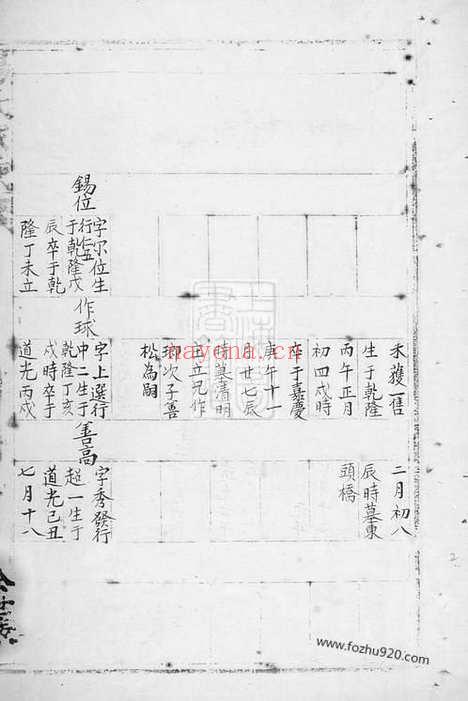 錫位
字尔位生
行仁五
于乾隆戊
辰卒于乾
隆丁未立
未獲一售
生于乾隆
丙午正月
初四戌時
卒于嘉慶
庚午十一
月廿七辰
時墓清明
立兄作
瑯次子善
松為嗣
作球
字上選行
中二生于
乾隆丁亥
戌時卒于
道光丙戌
二月初八
辰時墓東
頭橋
善高
字秀發行
超一生于
道光己丑
七月十八
nayona.cn
www.fozhu920.com